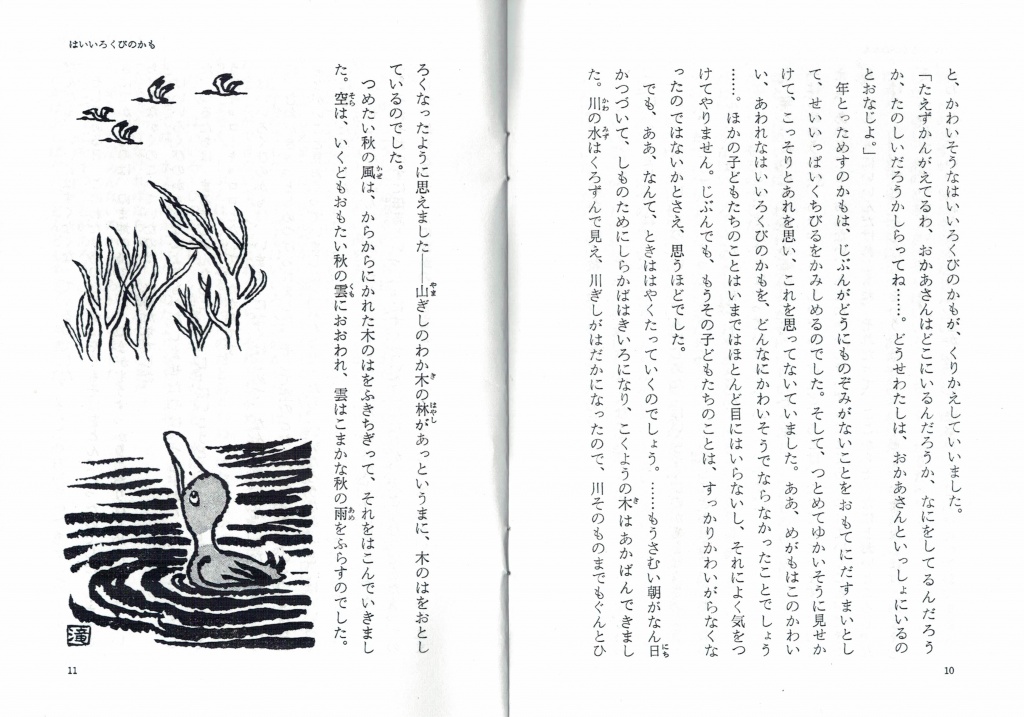 と、かわいそうなはいいろくびのかもが、くりかえしていいました。
「たえずかんがえてるわ、おかあさんはどこにいるんだろうか、なにをしてるんだろう
か、たのしいだろうかしらってね……。どうせわたしは、おかあさんといっしょにいるの
とおなじよ。」
年とっためすのかもは、じぶんがどうにものぞみがないことをおもてにだすまいとし
て、せいいっぱいくちびるをかみしめるのでした。そして、つとめてゆかいそうに見せか
けて、こっそりとあれを思い、これを思ってないていました。ああ、めがもはこのかわい
い、あわれなはいいろくびのかもを、どんなにかわいそうでならなかったことでしょう
……。ほかの子どもたちのことはいまではほとんど目にはいらないし、それによく気をつ
けてやりません。じぶんでも、もうその子どもたちのことは、すっかりかわいがらなくな
ったのではないかとさえ、思うほどでした。
でも、ああ、なんて、ときははやくたっていくのでしょう。……もうさむい朝がなん日にち
かつづいて、しものためにしらかばはきいろになり、こくようの木きはあかばんできまし
た。川かわの水みずはくろずんで見え、川ぎしがはだかになったので、川そのものまでもぐんとひ
10
はいいろくびのかも
ろくなったように思えました――山やまぎしのわか木きの林はやしがあっというまに、木のはをおとし
ているのでした。
つめたい秋の風かぜは、からからにかれた木のはをふきちぎって、それをはこんでいきまし
た。空そらは、いくどもおもたい秋の雲くもにおおわれ、雲はこまかな秋の雨あめをふらすのでした。
滝
11